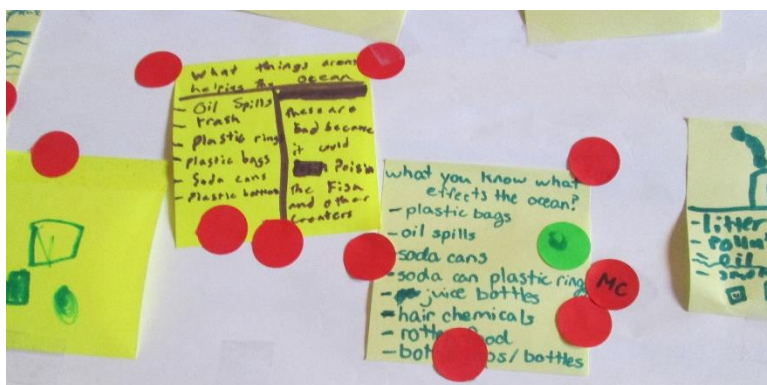 What things arens
helping the ocean
- Oil Spills
- trash
- plastic rings
- plastic bags
- Soda cans
- Plastic bottles
these are
bad because
it could
Poisin
the Fish
and other
creaters
what you know what
effects the ocean?
- plastic bags
- oil spills
- soda cans
- soda can plastic ring
- juice bottles
- hair chemicals
- bottles
MC
- litter
- oil